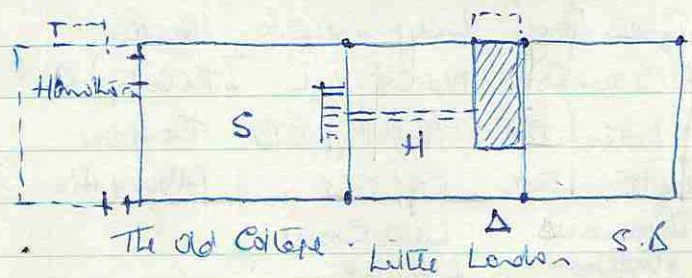 S
H
The Old Cottage. Little London S.B